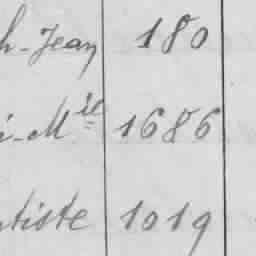 h-Jean 180
i-M^ie 1686
tiste 1019